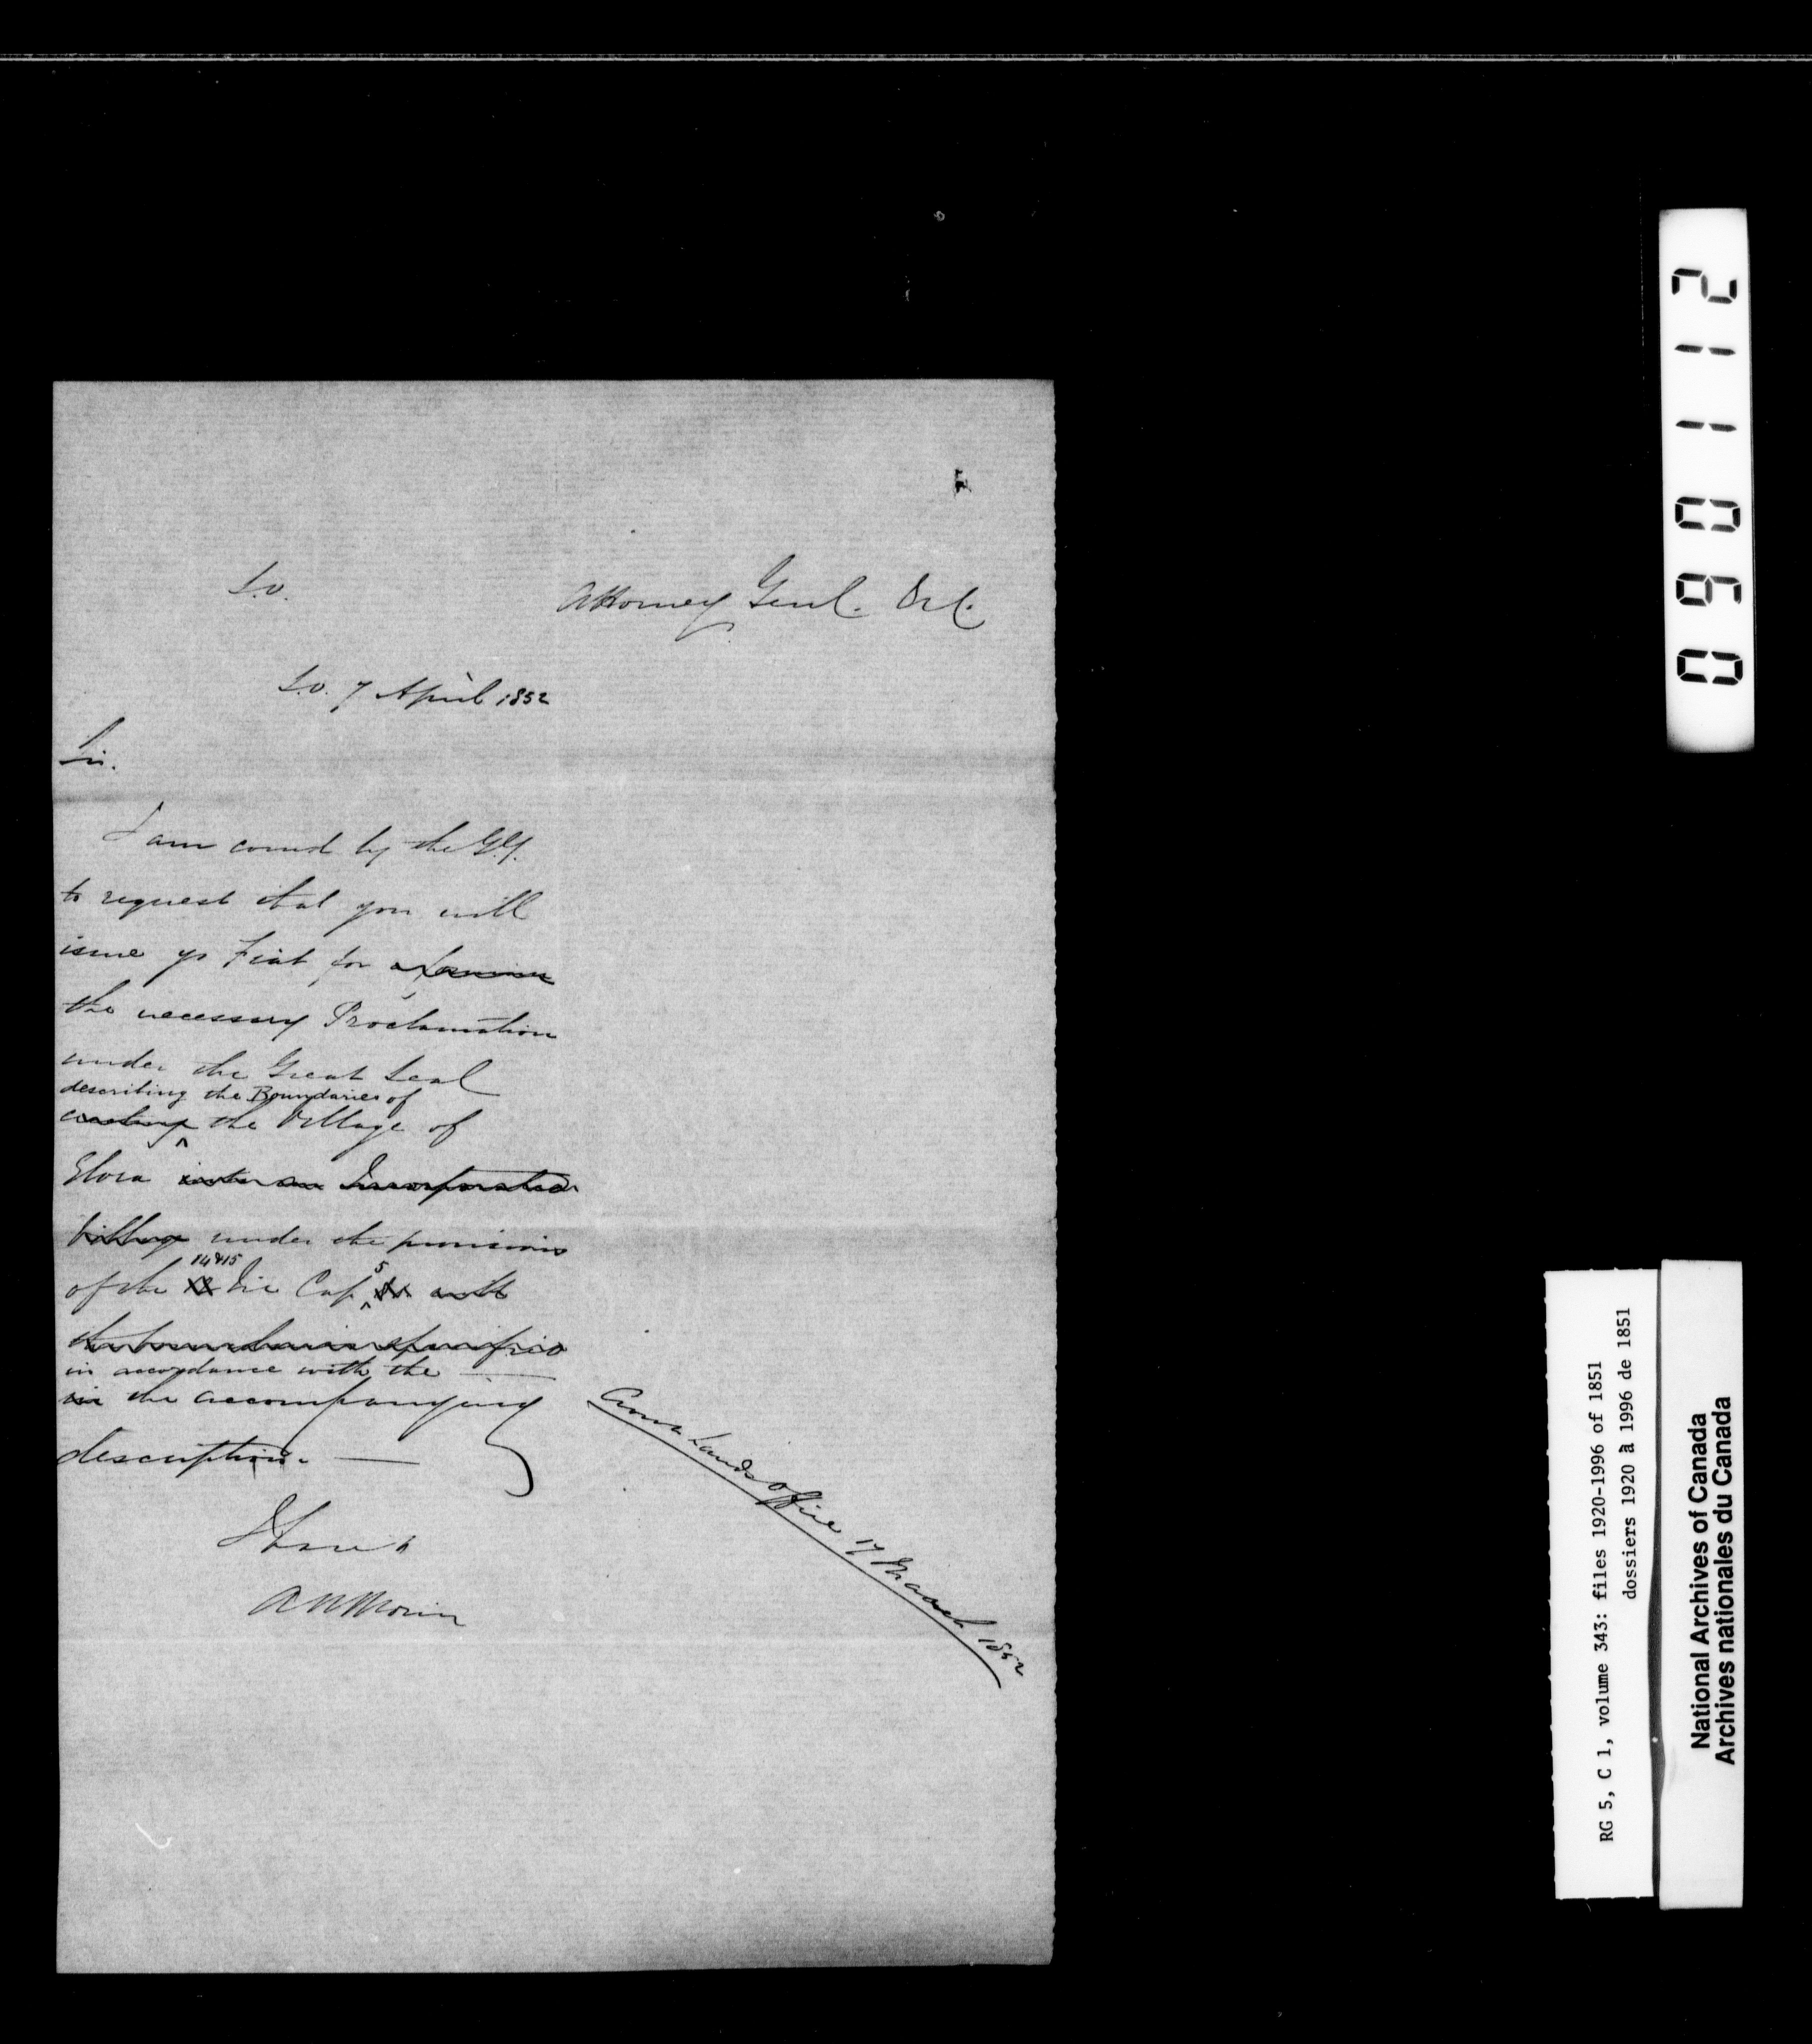 S.O. Attorney Genl. &c &c.
S.O. 7 April 1852
Sir.
I am comd by the G.G.
to request that you will
issue yr Fiat for a
the necessary Proclamation
under the Great Seal
describing the Boundaries of
erecting the Village of
Elora into an Incorporated
Village under the provisions
14 & 15
of the Vic Cap 5 with
the boundaries specified
in accordance with the
in the accompanying
description.
I have &
A N Morin
Crown Lands Office 17 March 1852
090112
RG 5, C 1, volume 343: files 1920-1996 of 1851
dossiers 1920 à 1996 de 1851
National Archives of Canada
Archives nationales du Canada